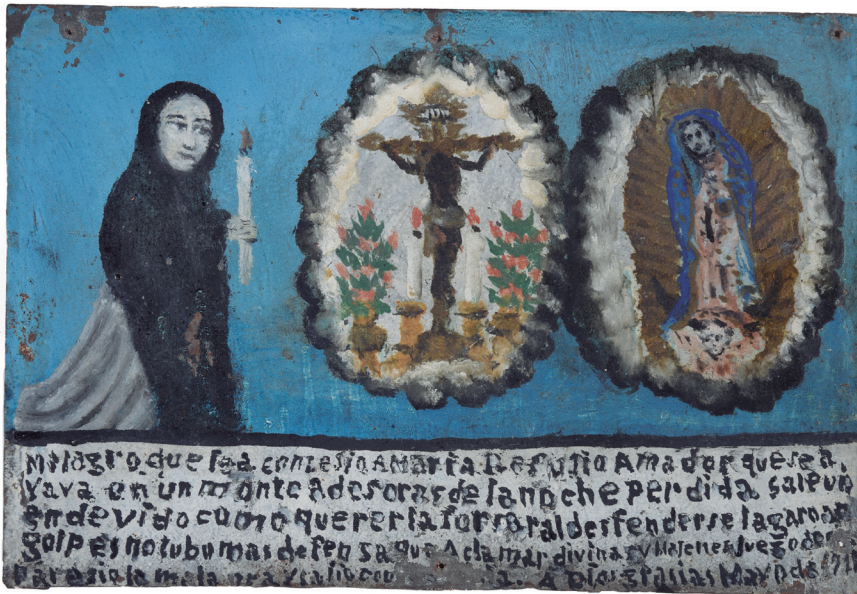 Milagro que lea consesio A Maria Refujio Amador que se a,
yava en un monte a desoras de la noche perdida sale un
endevido como quererla forsar al desfenderse la garo a
golpes no tubo mas defensa que Aclamar divinas Majenes luego
paresio la mala A Dios grasias Mayo de